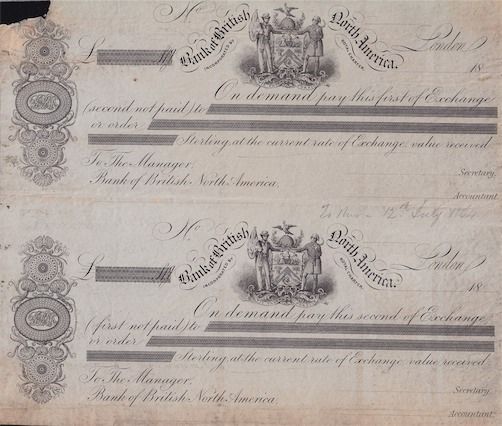 No
Bank of British North America.
INCORPORATED BY ROYAL CHARTER.
London,
£
18
On demand pay this first of Exchange
(second not paid) to
or order
Sterling, at the current rate of Exchange, value received.
To The Manager,
Secretary.
Bank of British North America.
Accountant.
12th July
No
Bank of British North America.
INCORPORATED BY ROYAL CHARTER.
London,
£
18
On demand pay this second of Exchange
(first not paid) to
or order
Sterling, at the current rate of Exchange, value received.
To The Manager,
Secretary.
Bank of British North America.
Accountant.